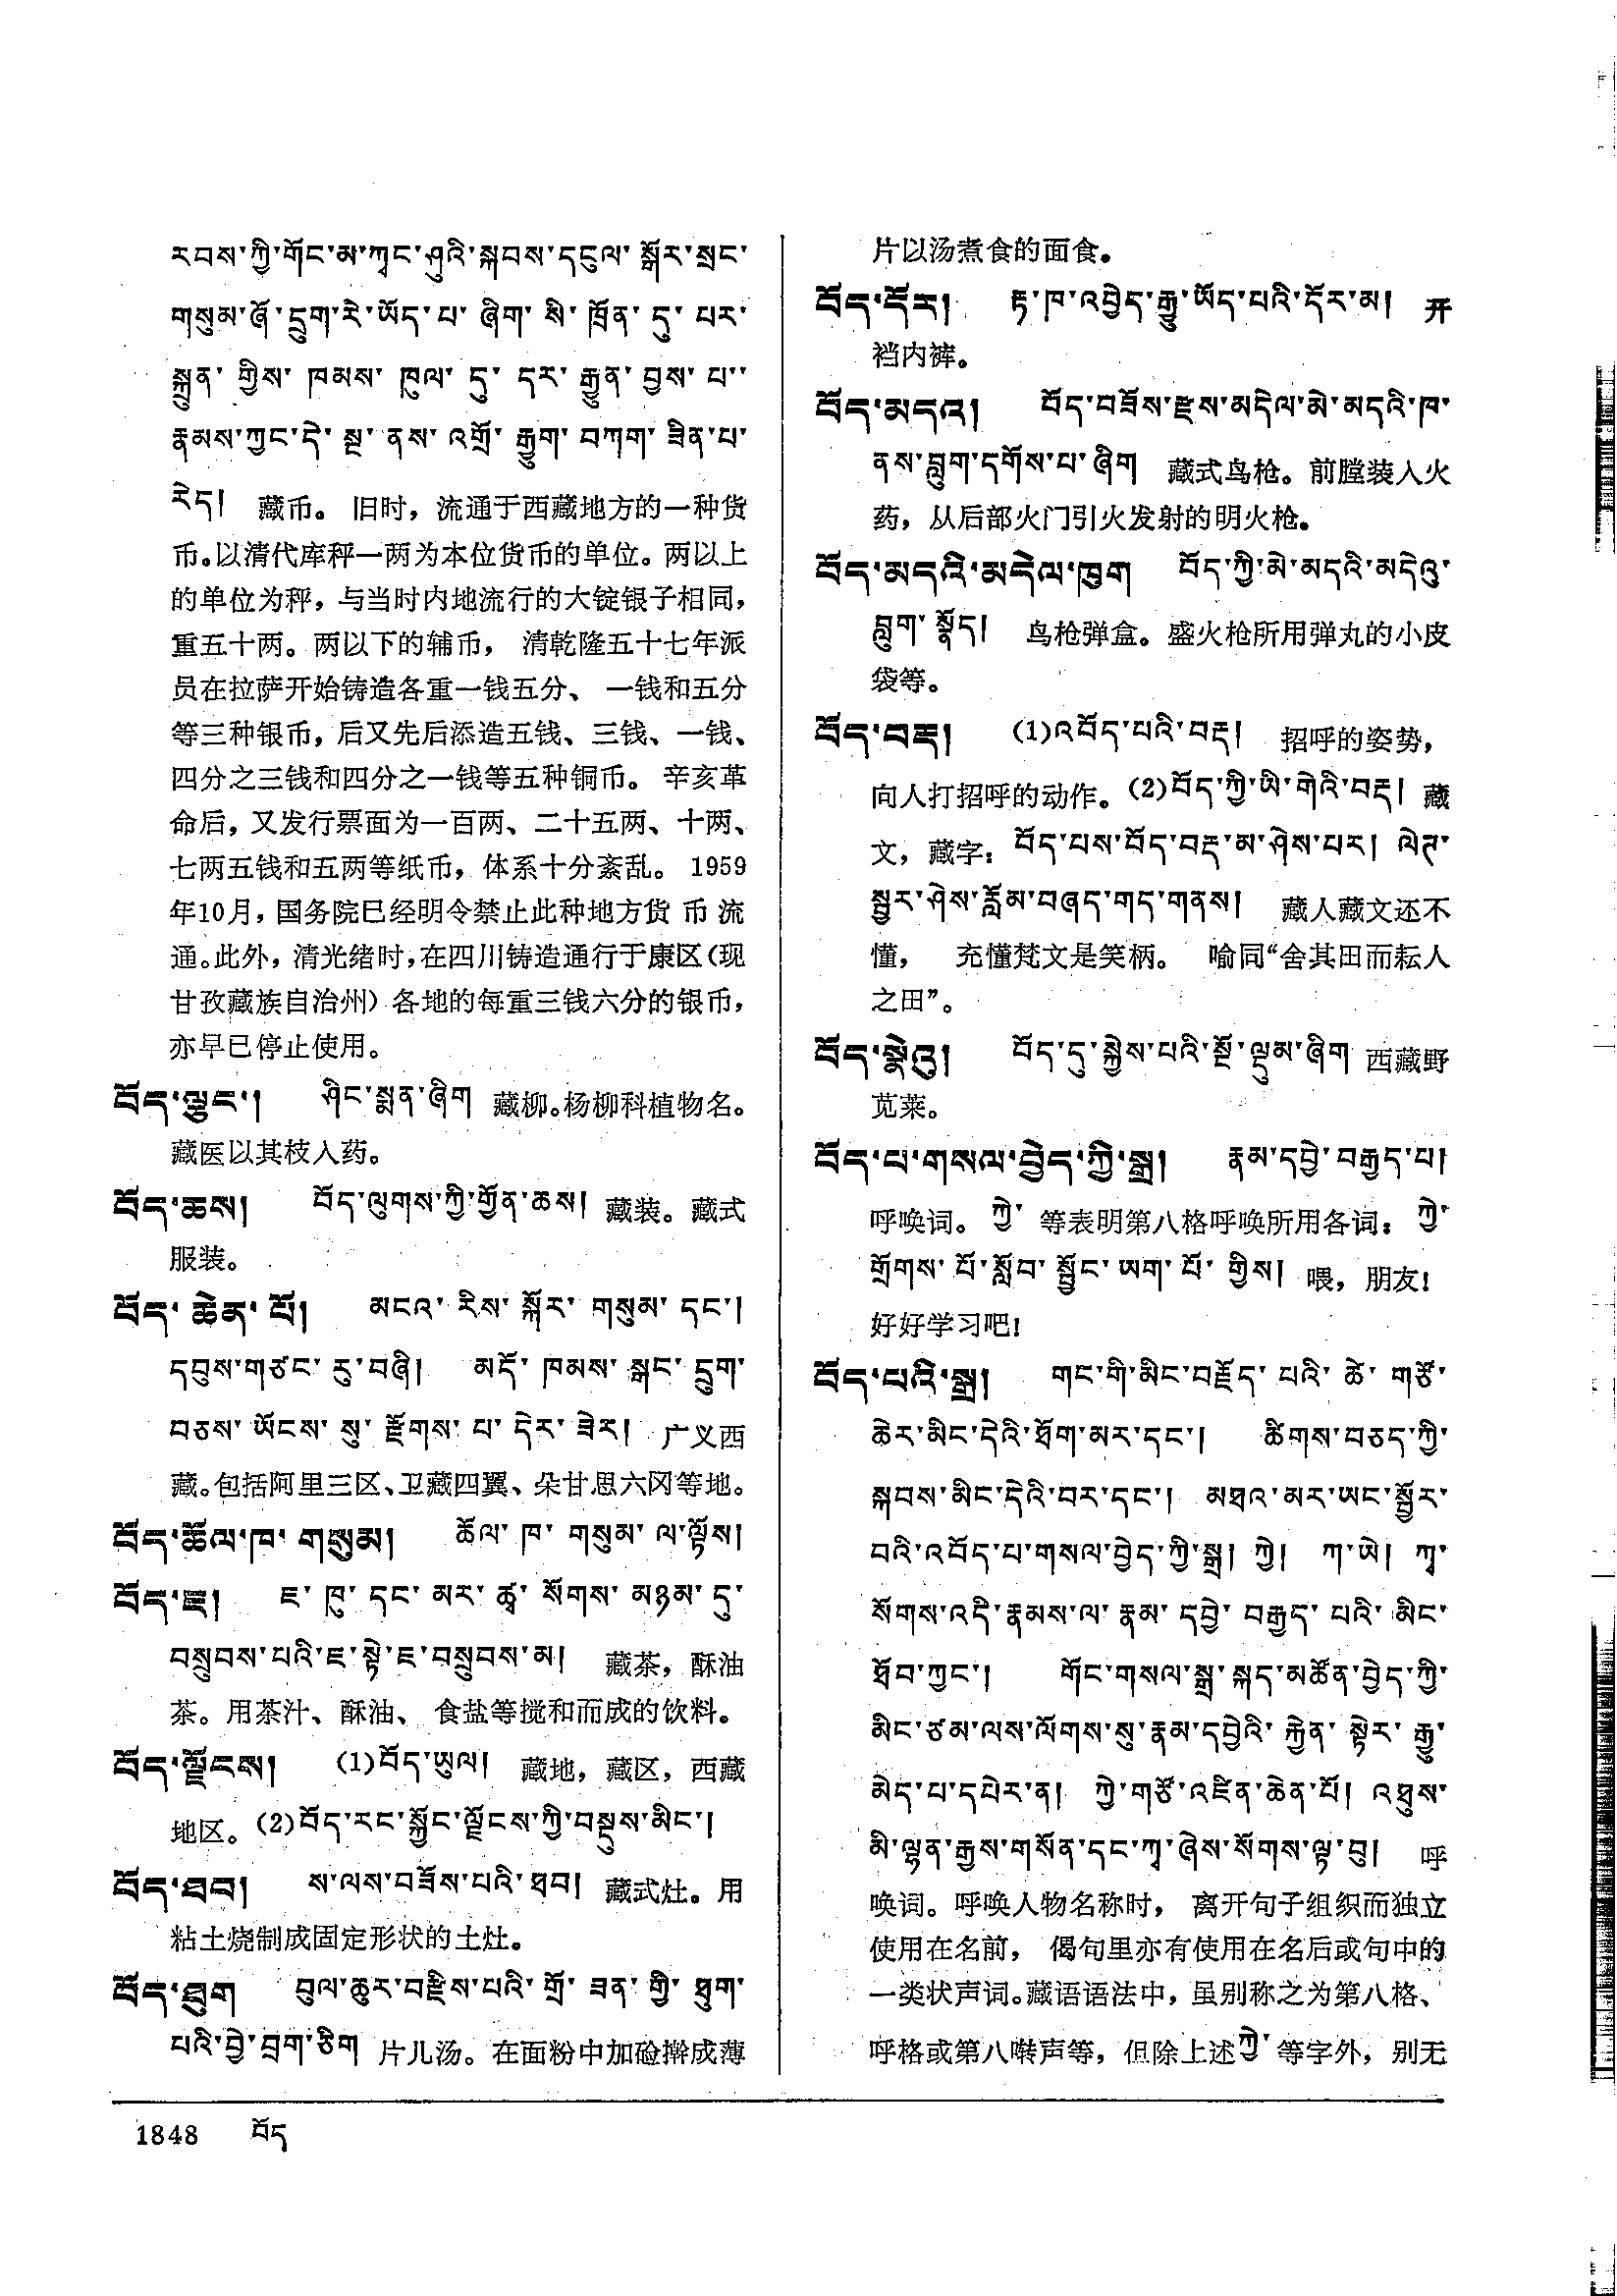 རབས་ཀྱི་གོང་མ་ཀྭང་ཤུའི་སྐབས་དངུལ་སྒོར་སྲང་
གསུམ་ཞོ་དྲུག་རེ་ཡོད་པ་ཞིག་སི་ཁྲོན་དུ་པར་
སྐྲུན་གྱིས་ཁམས་ཁུལ་དུ་དར་རྒྱུན་བྱས་པ་་
རྣམས་ཀྱང་དེ་སྔ་ནས་འགྲོ་རྒྱུག་བཀག་ཟིན་པ་
རེད། 藏币。旧时，流通于西藏地方的一种货
币。以清代库秤一两为本位货币的单位。两以上
的单位为秤，与当时内地流行的大锭银子相同，
重五十两。两以下的辅币， 清乾隆五十七年派
员在拉萨开始铸造各重一钱五分、一钱和五分
等三种银币，后又先后添造五钱、三钱、一钱、
四分之三钱和四分之一钱等五种铜币。辛亥革
命后，又发行票面为一百两、二十五两、十两、
七两五钱和五两等纸币，体系十分紊乱。1959
年10月，国务院已经明令禁止此种地方货币流
通。此外，清光绪时，在四川铸造通行于康区（现
甘孜藏族自治州）各地的每重三钱六分的银币，
亦早已停止使用。
བོད་ལྕང་། ཤིང་སྨན་ཞིག 藏柳。杨柳科植物名。
藏医以其枝入药。
བོད་ཆས། བོད་ལུགས་ཀྱི་གྱོན་ཆས། 藏装。藏式
服装。
བོད་ཆེན་པོ། མངའ་རིས་སྐོར་གསུམ་དང་།
དབུས་གཙང་རུ་བཞི། མདོ་ཁམས་སྒང་དྲུག་
བཅས་ཡོངས་སུ་རྫོགས་པ་དེར་ཟེར། 广义西
藏。包括阿里三区、卫藏四翼、朵甘思六冈等地。
བོད་ཆོལ་ཁ་གསུམ། ཆོལ་ཁ་གསུམ་ལ་ལྟོས།
བོད་ཇ། ཇ་ཁུ་དང་མར་ཚྭ་སོགས་མཉམ་དུ་
བསྲུབས་པའི་ཇ་སྟེ་ཇ་བསྲུབས་མ། 藏茶，酥油
茶。用茶汁、酥油、食盐等搅和而成的饮料。
བོད་ལྗོངས། (1)བོད་ཡུལ། 藏地，藏区，西藏
地区。(2)བོད་རང་སྐྱོང་ལྗོངས་ཀྱི་བསྡུས་མིང་།
བོད་ཐབ། ས་ལས་བཟོས་པའི་ཐབ། 藏式灶。用
粘土烧制成固定形状的土灶。
བོད་ཐུག བུལ་ཆུར་བརྫིས་པའི་གྲོ་ཟན་གྱི་ཐུག་
པའི་བྱེ་བྲག་ཅིག 片儿汤。在面粉中加硷擀成薄
片以汤煮食的面食。
བོད་དོར། རྟ་ཁ་འབྱེད་རྒྱུ་ཡོད་པའི་དོར་མ། 开
裆内裤。
བོད་མདའ། བོད་བཟོས་རྫས་མདེལ་མེ་མདའི་ཁ་
ནས་བླུག་དགོས་པ་ཞིག 藏式鸟枪。前膛装入火
药，从后部火门引火发射的明火枪。
བོད་མདའི་མདེལ་ཁུག བོད་ཀྱི་མེ་མདའི་མདེའུ་
བླུག་སྣོད། 鸟枪弹盒。盛火枪所用弹丸的小皮
袋等。
བོད་བརྡ། (1)འབོད་པའི་བརྡ། 招呼的姿势，
向人打招呼的动作。(2)བོད་ཀྱི་ཡི་གེའི་བརྡ། 藏
文，藏字：བོད་པས་བོད་བརྡ་མ་ཤེས་པར། ལེཊ་
སྦྱར་ཤེས་རློམ་བཞད་གད་གནས། 藏人藏文还不
懂， 充懂梵文是笑柄。 喻同“舍其田而耘人
之田”。
བོད་སྣེའུ། བོད་དུ་སྐྱེས་པའི་སྔོ་ལྡུམ་ཞིག 西藏野
苋菜。
བོད་པ་གསལ་བྱེད་ཀྱི་སྒྲ། རྣམ་དབྱེ་བརྒྱད་པ།
呼唤词。ཀྱེ་ 等表明第八格呼唤所用各词：ཀྱེ་
གྲོགས་པོ་སློབ་སྦྱོང་ཡག་པོ་གྱིས། 喂，朋友！
好好学习吧！
བོད་པའི་སྒྲ། གང་གི་མིང་བརྗོད་པའི་ཚེ་གཙོ་
ཆེར་མིང་དེའི་ཐོག་མར་དང་། ཚིགས་བཅད་ཀྱི་
སྐབས་མིང་དེའི་བར་དང་། མཐའ་མར་ཡང་སྦྱོར་
བའི་འབོད་པ་གསལ་བྱེད་ཀྱི་སྒྲ། ཀྱེ། ཀ་ཡེ། ཀྭ་
སོགས་འདི་རྣམས་ལ་རྣམ་དབྱེ་བརྒྱད་པའི་མིང་
ཐོབ་ཀྱང་། གོང་གསལ་སྒྲ་སྐད་མཚོན་བྱེད་ཀྱི་
མིང་ཙམ་ལས་ལོགས་སུ་རྣམ་དབྱེའི་རྐྱེན་སྟེར་རྒྱུ་
མེད་པ་དཔེར་ན། ཀྱེ་གཙོ་འཛིན་ཆེན་པོ། འཐུས་
མི་ལྷན་རྒྱས་གསོན་དང་ཀྭ་ཞེས་སོགས་ལྟ་བུ། 呼
唤词。呼唤人物名称时， 离开句子组织而独立
使用在名前， 偈句里亦有使用在名后或句中的
一类状声词。藏语语法中，虽别称之为第八格、
呼格或第八啭声等，但除上述ཀྱེ་ 等字外，别无
1848 བོད